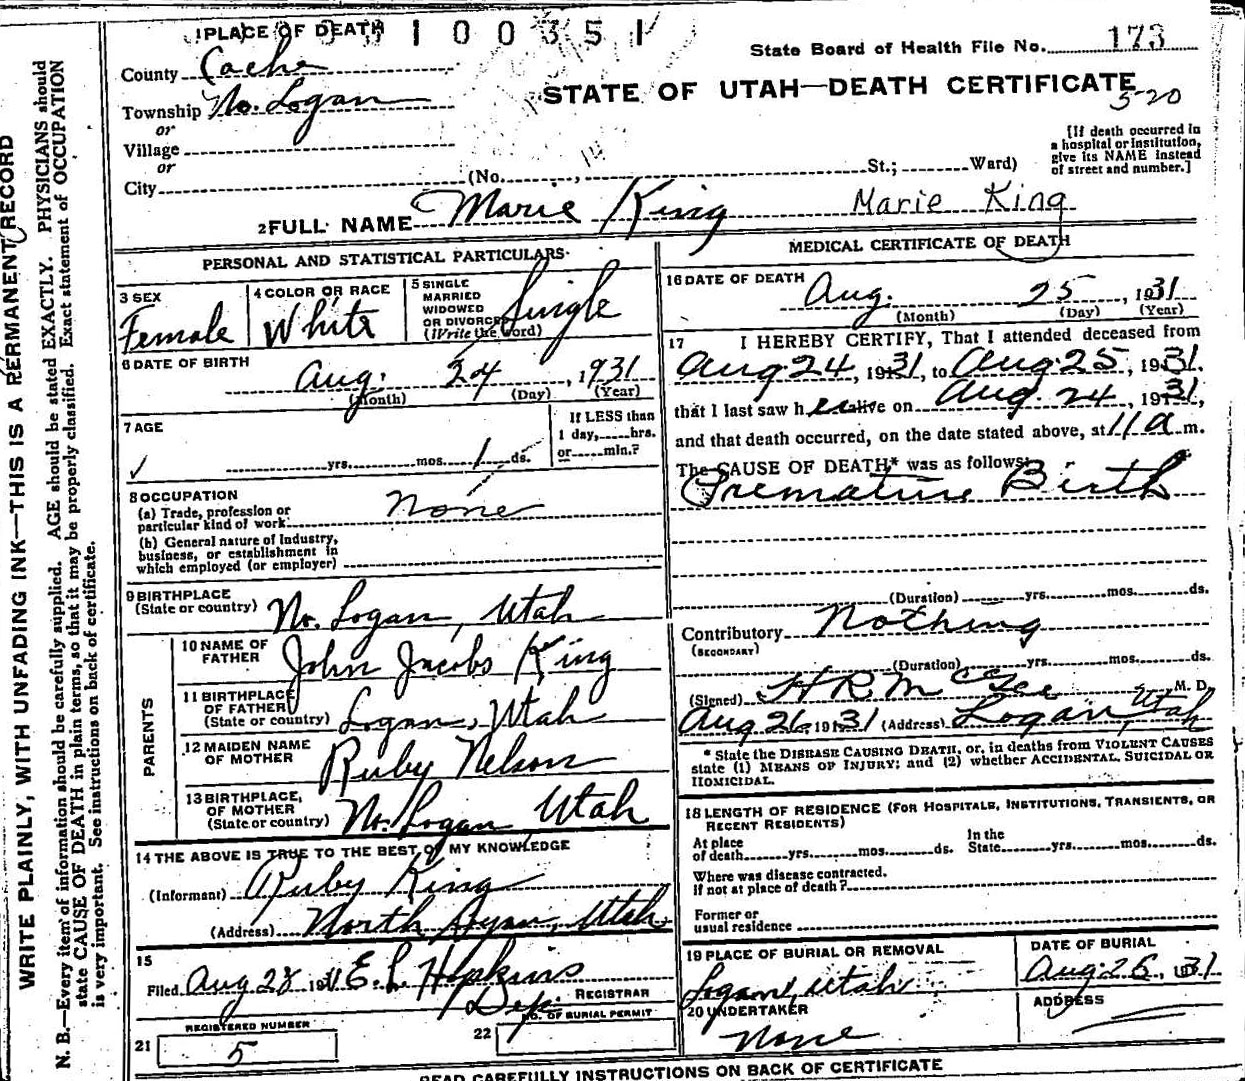 WRITE PLAINLY, WITH UNFADING INK—THIS IS A PERMANENT RECORD
N. B.—Every item of information should be carefully supplied. AGE should be stated EXACTLY. PHYSICIANS should
state CAUSE OF DEATH in plain terms, so that it may be properly classified. Exact statement of OCCUPATION
is very important. See instructions on back of certificate.
1 PLACE OF DEATH
100351
State Board of Health File No. 173
County Cache
STATE OF UTAH—DEATH CERTIFICATE
5-20
Township No. Logan
or
Village
or
City
(No. St.; Ward)
[If death occurred in
a hospital or institution,
give its NAME instead
of street and number.]
2 FULL NAME Marie King Marie King
PERSONAL AND STATISTICAL PARTICULARS
3 SEX
Female
4 COLOR OR RACE
White
5 SINGLE
MARRIED
WIDOWED
OR DIVORCED
(Write the word)
Single
6 DATE OF BIRTH
Aug. 24, 1931
(Month) (Day) (Year)
7 AGE
yrs. mos. 1 ds.
If LESS than
1 day, hrs.
or min.?
8 OCCUPATION
(a) Trade, profession or
particular kind of work None
(b) General nature of Industry,
business, or establishment in
which employed (or employer)
9 BIRTHPLACE
(State or country) No. Logan, Utah
PARENTS
10 NAME OF
FATHER John Jacobs King
11 BIRTHPLACE
OF FATHER
(State or country) Logan, Utah
12 MAIDEN NAME
OF MOTHER Ruby Nelson
13 BIRTHPLACE,
OF MOTHER
(State or country) No. Logan, Utah
14 THE ABOVE IS TRUE TO THE BEST OF MY KNOWLEDGE
(Informant) Ruby King
(Address) North Logan, Utah
15
Filed Aug 28 1931 E. L. Hopkins
Dep. REGISTRAR
REGISTERED NUMBER
21 5
22 NO. OF BURIAL PERMIT
MEDICAL CERTIFICATE OF DEATH
16 DATE OF DEATH
Aug. 25, 1931
(Month) (Day) (Year)
17 I HEREBY CERTIFY, That I attended deceased from
Aug 24, 1931, to Aug. 25, 1931.
that I last saw her alive on Aug. 24, 1931,
and that death occurred, on the date stated above, at 11 a m.
The CAUSE OF DEATH* was as follows:
Premature Birth
(Duration) yrs. mos. ds.
Contributory Nothing
(SECONDARY)
(Duration) yrs. mos. ds.
(Signed) H R McGee M. D.
Aug 26 1931 (Address) Logan, Utah
* State the DISEASE CAUSING DEATH, or, in deaths from VIOLENT CAUSES
state (1) MEANS OF INJURY; and (2) whether ACCIDENTAL, SUICIDAL OR
HOMICIDAL.
18 LENGTH OF RESIDENCE (FOR HOSPITALS, INSTITUTIONS, TRANSIENTS, OR
RECENT RESIDENTS)
At place
of death yrs. mos. ds.
In the
State yrs. mos. ds.
Where was disease contracted.
if not at place of death?
Former or
usual residence
19 PLACE OF BURIAL OR REMOVAL
Logan, Utah
DATE OF BURIAL
Aug. 26, 1931
20 UNDERTAKER
None
ADDRESS
READ CAREFULLY INSTRUCTIONS ON BACK OF CERTIFICATE